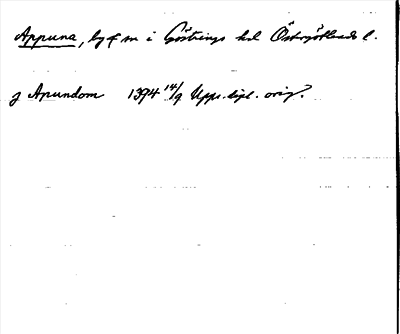 Appuna, by o sn i Göstrings hd Östergötlands l.
J Apundom 1394 14/9 Upps. dipl. orig.